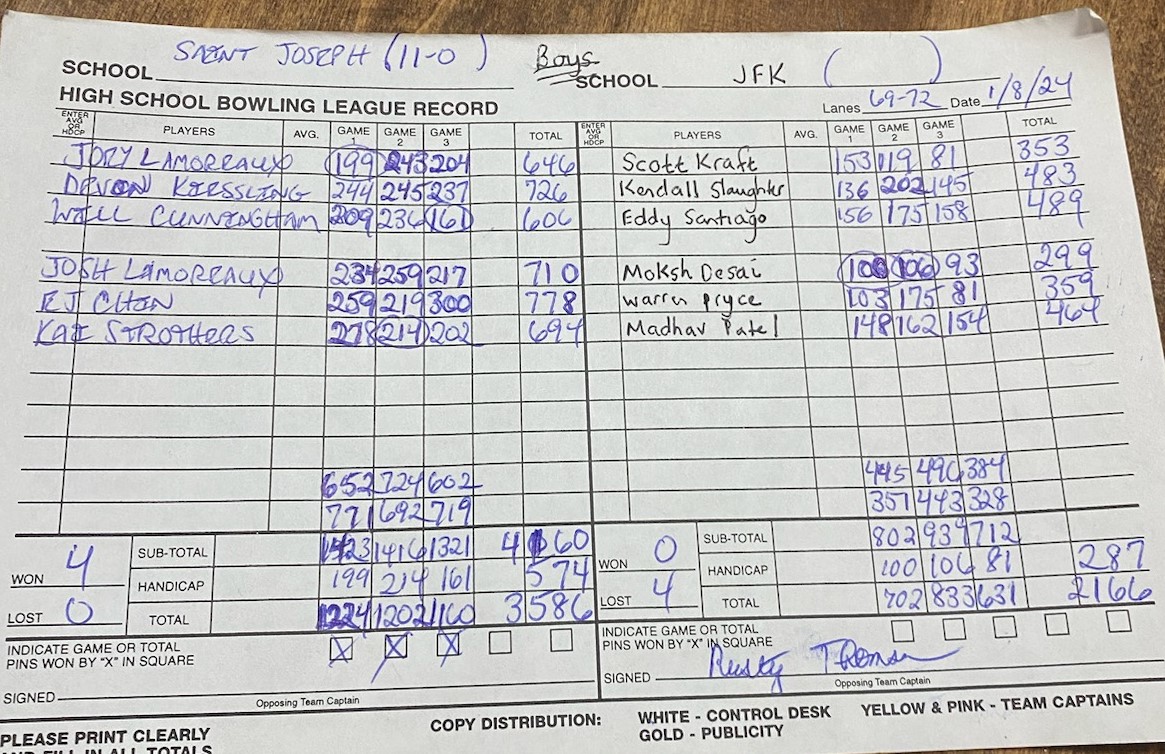 SCHOOL SAINT JOSEPH (11-0) Boys SCHOOL JFK ( )
HIGH SCHOOL BOWLING LEAGUE RECORD Lanes 69-72 Date 1/8/24
ENTER AVG OR HDCP PLAYERS AVG. GAME 1 GAME 2 GAME 3 TOTAL ENTER AVG OR HDCP PLAYERS AVG. GAME 1 GAME 2 GAME 3 TOTAL
JORY LAMOREAUX 199 243 204 646 Scott Kraft 153 119 81 353
DEVON KIESSLING 244 245 237 726 Kendall Slaughter 136 202 145 483
WILL CUNNINGHAM 209 236 161 606 Eddy Santiago 156 175 158 489
JOSH LAMOREAUX 234 259 217 710 Moksh Desai 100 106 93 299
EJ CHIN 259 219 300 778 Warren Pryce 103 175 81 359
KAI STROTHERS 278 214 202 694 Madhav Patel 148 162 154 464
652 724 602 445 496 384
771 692 719 357 443 328
WON 4 SUB-TOTAL 1423 1416 1321 4160 WON 0 SUB-TOTAL 802 939 712
HANDICAP 199 214 161 574 HANDICAP 100 106 81 287
LOST 0 TOTAL 1224 1202 1160 3586 LOST 4 TOTAL 702 833 631 2166
INDICATE GAME OR TOTAL PINS WON BY "X" IN SQUARE X X X INDICATE GAME OR TOTAL PINS WON BY "X" IN SQUARE
SIGNED SIGNED Rusty Thomsen
Opposing Team Captain Opposing Team Captain
PLEASE PRINT CLEARLY COPY DISTRIBUTION: WHITE - CONTROL DESK YELLOW & PINK - TEAM CAPTAINS
AND FILL IN ALL TOTALS GOLD - PUBLICITY